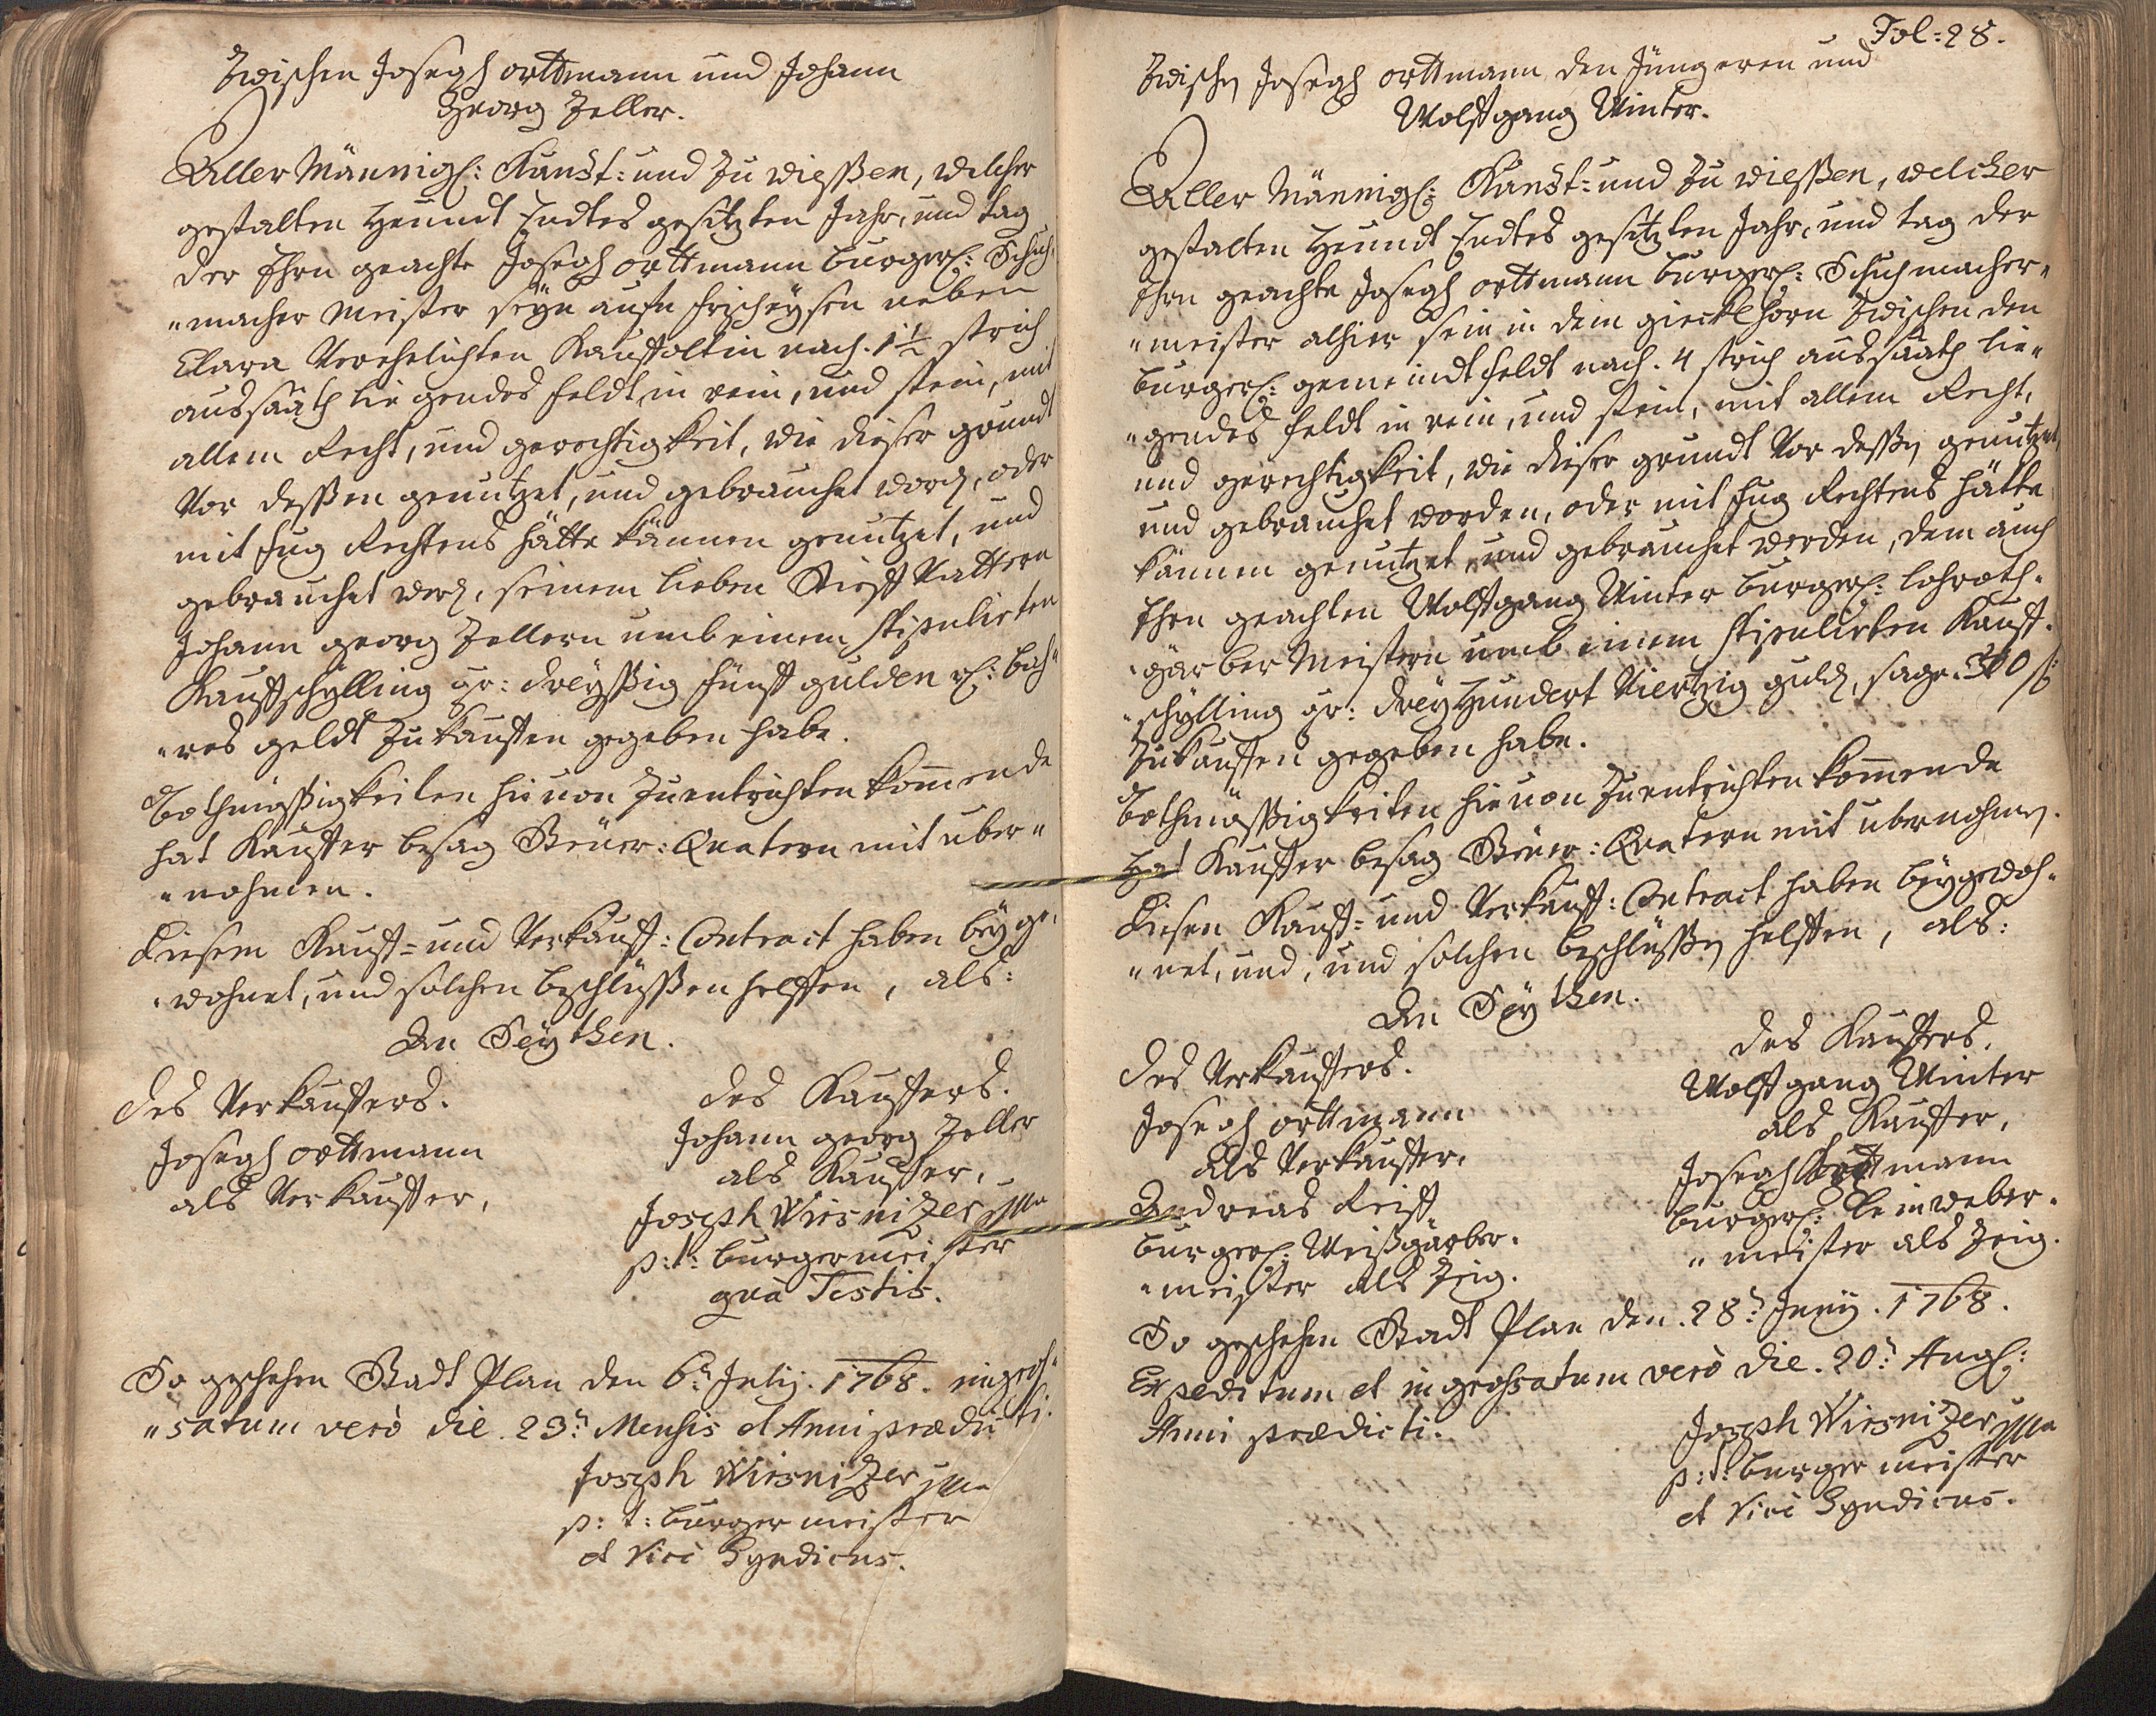 Zwischen Joseph Orttmann und Johann
Georg Zeller.
Aller Männigl: Kunst- und zu wiesßen, welcher
gestalten heundt Endtes gesitzten Jahr, und tag
der Ehrn geachte Joseph Orttmann burgerl: Schuh-
"macher Meister seyn aufn frischeysen neben
Clara Verehelichten Kauffoltin nach. 1½ strich
aussaath liegendes feldt in rein, und stein, mit
allem Recht, und gerechtigkeit, wie dieser grundt
Vor dessßen genutzet, und gebrauchet word, oder
mit fug Rechtens hätte können genutzet, und
gebrauchet werd, seinem lieben Stieff Vattern
Johann georg Zellern umb einem stipulirten
Kauffschylling gr: dreysßig fünff gulden rl: bah-
"res geldt zu kauffen gegeben habe.
Bothmässigkeiten hievon zu entrichten komende
hat Kauffer besag Steüer: Quatern mit uber"
"nohmen.
Diesem Kauff- und Verkauff: Contract haben beyge-
"wohnet, und solchen beschlüssßen helffen, als:
An Seythen.
des Verkauffers.
Joseph Orttmann
als Verkauffer,
des Kauffers.
Johann georg Zeller
als Kauffer,
Joseph Wirsnitzer mpa
p: t: burgermeister
qua Testis.
So geschehen Stadt Plan den 6t: July. 1768. ingros-
"satum verò die. 23t: Mensis et Anni praedicti.
Joseph Wirsnitzer mpa
p: t: burgermeister
et Vice Syndicus.
Fol: 28.
Zwischen Joseph Orttmann den Jüngeren und
Wolffgang Winter.
Aller Männigl: Kunst- und zu wiesßen, welcher
gestalten heundt Endtes gesitzten Jahr, und tag der
Ehrn geachte Joseph Orttmann burgerl: Schuhmacher"
"meister alhier sein in dem gieckelhorn zwischen den
burgerl: gemeindt feldt nach. 4 strich aussaath lie"
"gendes feldt in rein, und stein, mit allem Recht,
und gerechtigkeit, wie dieser grundt Vor desßen genutzet,
und gebrauchet worden, oder mit fug Rechtens hätte
können genutzet, und gebrauchet werden, dem auch
Ehrn geachten Wolffgang Winter burgerl: lohroth-
"gärber Meistern umb einem stipulirten Kauff-
"schylling gr: drey Hundert Viertzig guld, sage. 340 f
zu kauffen gegeben habe.
Bothmässigkeiten hievon zu entrichten komende
hat Kauffer besag Steüer: Quatern mit ubernohmen.
Diesen Kauff- und Verkauff: Contract haben beygewoh-
"net, und, und solchen beschlüssßen helffen, als:
An Seythen.
des Verkauffers.
Joseph Orttmann
als Verkauffer,
Andreas Reiff
burgerl: Weißgärber-
"meister als Zeig.
des Kauffers.
Wolffgang Winter
als Kauffer,
Joseph Orttmann
burgerl: Leinweber-
"meister als Zeig.
So geschehen Stadt Plan den. 28t: Juny. 1768.
Expeditum et ingrossatum verò die. 20t: Augl:
Anni praedicti.
Joseph Wirsnitzer mpa
p: t: burgermeister
et Vice Syndicus.